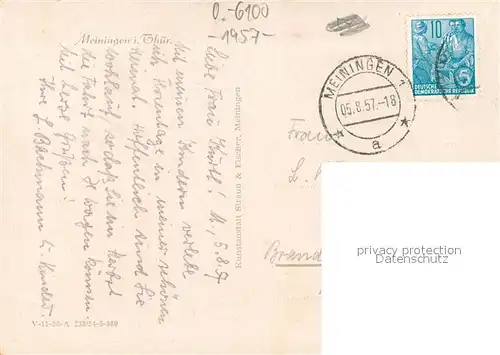 0.-6100
1957-
Meiningen i. Thür.
Liebe Frau
M., 5.8.57
Mit meinen Kindern verlebe
ich Ferientage in meiner schönen
Heimat. Hoffentlich sind Sie
wohlauf, so daß Sie im Herbst
die Fahrt nach wagen können.
Mit Grüßen!
Ihre L. Bachmann u. Kinder.
Kunstanstalt Straub & Fischer, Meiningen
V-11-28-A
MEININGEN 1
05.8.57.-18
a
10
DEUTSCHE
DEMOKRATISCHE REPUBLIK
Frau
Brand
privacy protection
AnsichtskartenVersand.com